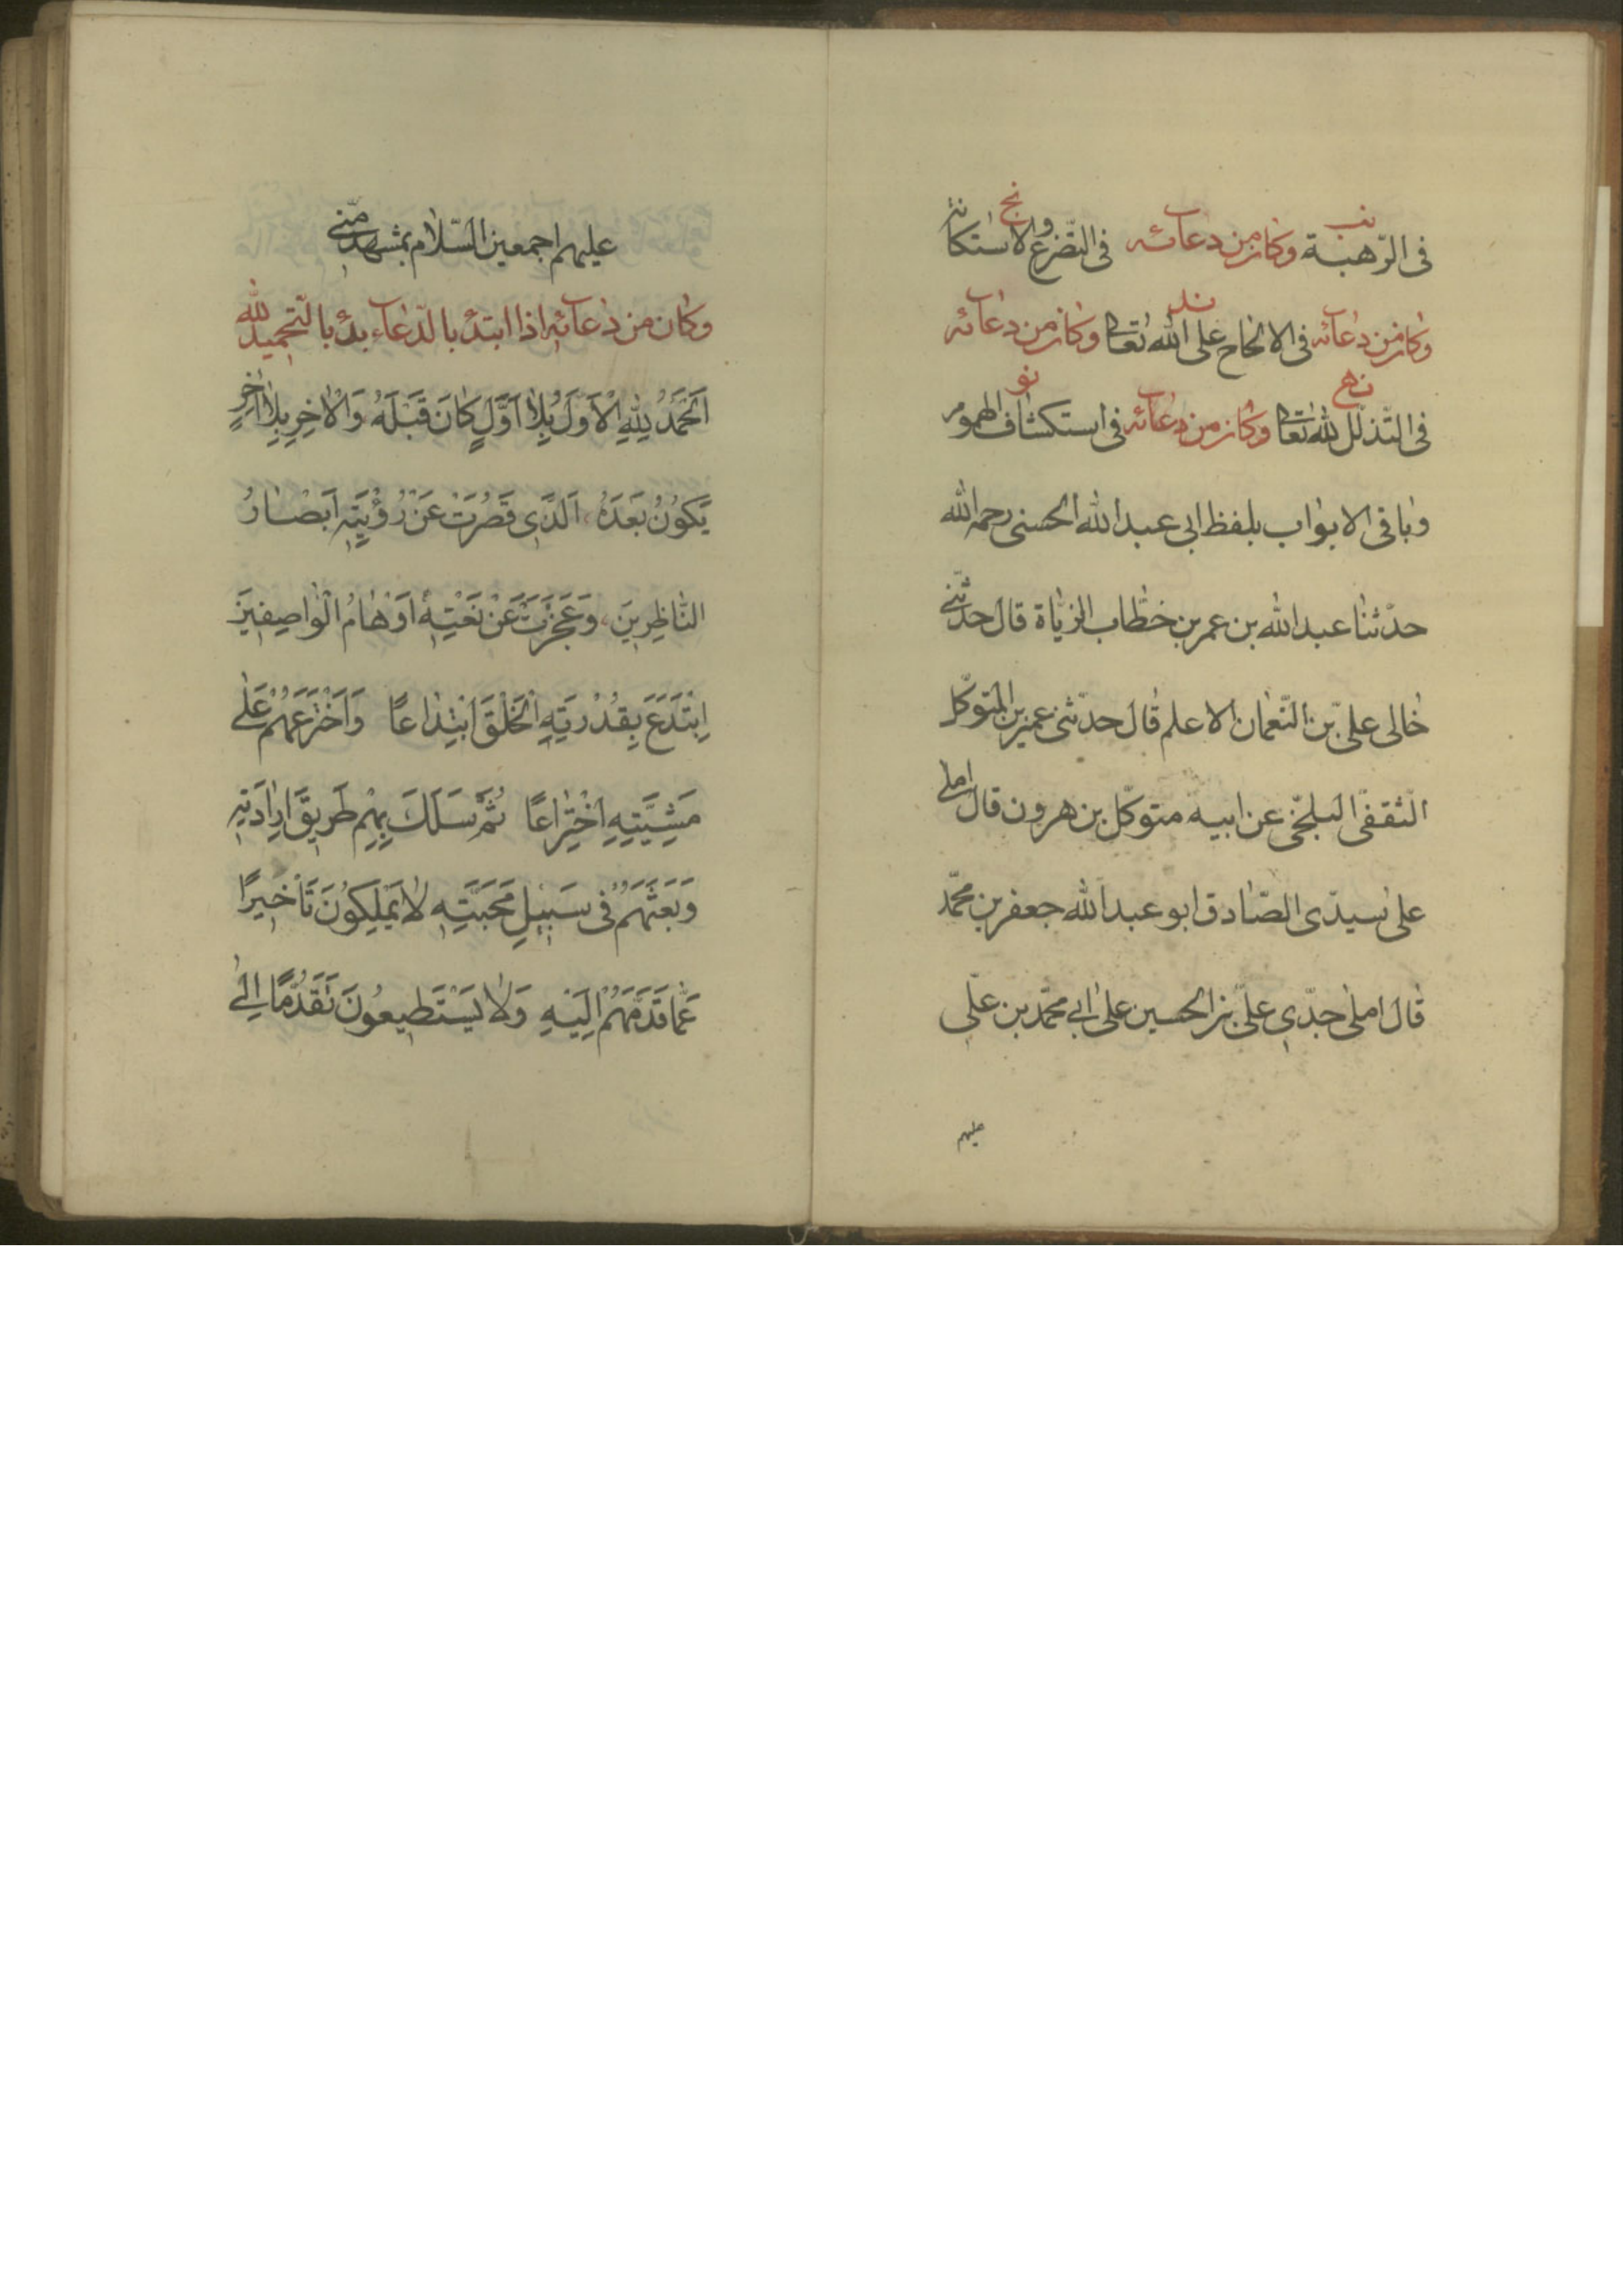 نب نج
فى الرّهبة وكان من دعائه فى التّضرع والاستكانة
ند
وكان من دعائه فى الالحاح على الله تعالى وكان من دعائه
نه نو
فى التّذلّل لله تعالى وكان من دعائه فى استكشاف الهموم
وباقى الابواب بلفظ ابى عبد الله الحسنى رحمه الله
حدّثنا عبد الله بن عمر بن خطّاب الزيّاة قال حدّثنى
خالى على بن النّعمان الاعلم قال حدثنى عمير بن المتوكّل
الثقفىّ البلخىّ عن ابيه متوكّل بن هرون قال املى
علىّ سيدّى الصّادق ابو عبد الله جعفر بن محمّد
قال املى جدّى علىّ بن الحسين على ابى محمّد بن علّى
عليهم
عليهم اجمعين السّلام بمشهد منّى
وكان من دعائه اذا ابتدئ بالدّعاء بدئ بالتّحميد لله
اَلْحَمْدُ لِلّٰهِ الْاَوَّلِ بِلاٰ اَوَّلٍ كٰانَ قَبْلَهُ وَالْاٰخِرِ بِلاٰ اٰخِرٍ
يَكُونُ بَعْدَهُ اَلَّذِى قَصُرَتْ عَنْ رُؤْيَتِهِ اَبْصٰارُ
النّٰاظِرِينَ وَعَجَزَتْ عَنْ نَعْتِهِ اَوْهٰامُ الْوٰاصِفِينَ
اِبْتَدَعَ بِقُدْرَتِهِ الْخَلْقَ ابْتِدٰاعًا وَاخْتَرَعَهُمْ عَلٰى
مَشِيَّتِهِ اخْتِرٰاعًا ثُمَّ سَلَكَ بِهِمْ طَرِيقَ اِرٰادَتِهِ
وَبَعَثَهُمْ فى سَبِيلِ مَحَبَّتِهِ لاٰ يَمْلِكُونَ تَأْخِيرًا
عَمّٰا قَدَّمَهُمْ اِلَيْهِ وَلاٰ يَسْتَطِيعُونَ تَقَدُّمًا اِلٰى